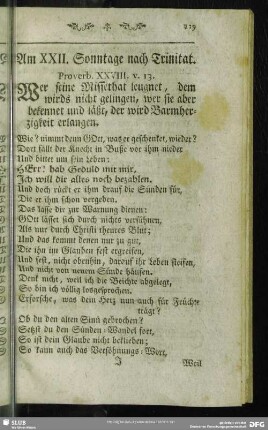 129
Am XXII. Sonntage nach Trinitat.
Proverb. XXVIII. v. 13.
Wer seine Missethat leugnet, dem
wirds nicht gelingen, wer sie aber
bekennet und läßt, der wird Barmher-
zigkeit erlangen.
Wie? nimmt denn GOtt, was er geschenket, wieder?
Dort fällt der Knecht in Buße vor ihm nieder
Und bittet um sein Leben:
HErr! hab Geduld mit mir,
Ich will dir alles noch bezahlen.
Und doch rückt er ihm drauf die Sünden für,
Die er ihm schon vergeben.
Das lasse dir zur Warnung dienen:
GOtt lässet sich durch nichts versühnen,
Als nur durch Christi theures Blut;
Und das kommt denen nur zu gut,
Die ihn im Glauben fest ergreifen,
Und fest, nicht obenhin, darauf ihr Leben steifen,
Und nicht von neuem Sünde häufen.
Denk nicht, weil ich die Beichte abgelegt,
So bin ich völlig losgesprochen.
Erforsche, was dein Herz nun auch für Früchte
trägt?
Ob du den alten Sinn gebrochen?
Setzst du den Sünden-Wandel fort,
So ist dein Glaube nicht beklieben;
So kann auch das Versöhnungs-Wort,
J
Weil
SLUB
DFG